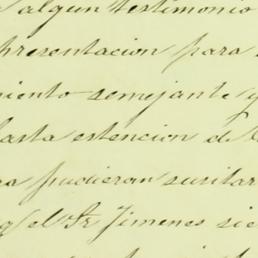 algun testimonio
presentacion para
miento semejante y
basta estencion de
pudieran sucitar
q/ el Sr Jimenes sie